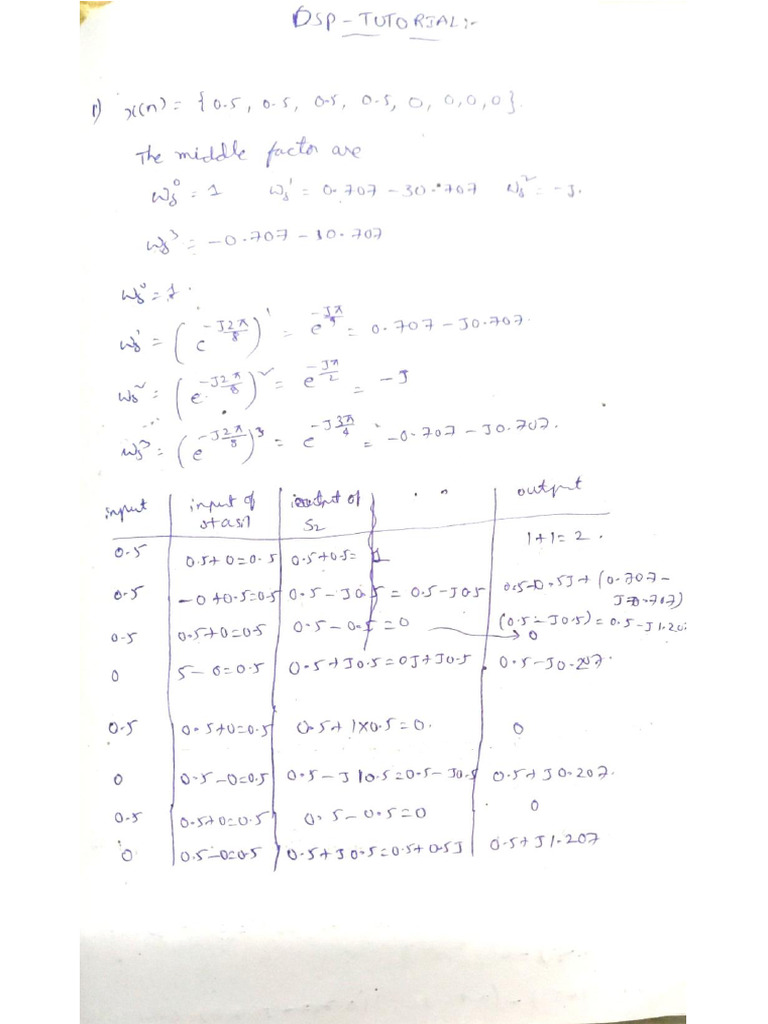 DSP - TUTORIAL:-
1) x(n) = {0.5, 0.5, 0.5, 0.5, 0, 0, 0, 0}.
The middle factor are
W₈⁰ = 1 W₈¹ = 0.707 - 30.707 W₈² = -J.
W₈³ = -0.707 - 10.707
W₈⁰ = 1.
W₈¹ = (e^(-J2π/8))¹ = e^(-Jπ/4) = 0.707 - J0.707.
W₈² = (e^(-J2π/8))² = e^(-Jπ/2) = -J
W₈³ = (e^(-J2π/8))³ = e^(-J3π/4) = -0.707 - J0.707.
input | input of stas1 | output of S2 | " | output
0.5 | 0.5+0=0.5 | 0.5+0.5=1 | 1+1=2.
0.5 | -0+0.5=0.5 | 0.5-J0.5 = 0.5-J0.5 | 0.5-0.5J+(0.707-J0.707)
0.5 | 0.5+0=0.5 | 0.5-0.5=0 | (0.5-J0.5)=0.5-J1.20
0
0 | 5-0=0.5 | 0.5+J0.5=0J+J0.5 | 0.5-J0.207.
0.5 | 0.5+0=0.5 | 0.5+1x0.5=0. | 0
0 | 0.5-0=0.5 | 0.5-J10.5=0.5-J0.5 | 0.5+J0.207.
0.5 | 0.5+0=0.5 | 0.5-0.5=0 | 0
0 | 0.5-0=0.5 | 0.5+J0.5=0.5+0.5J | 0.5+J1.207